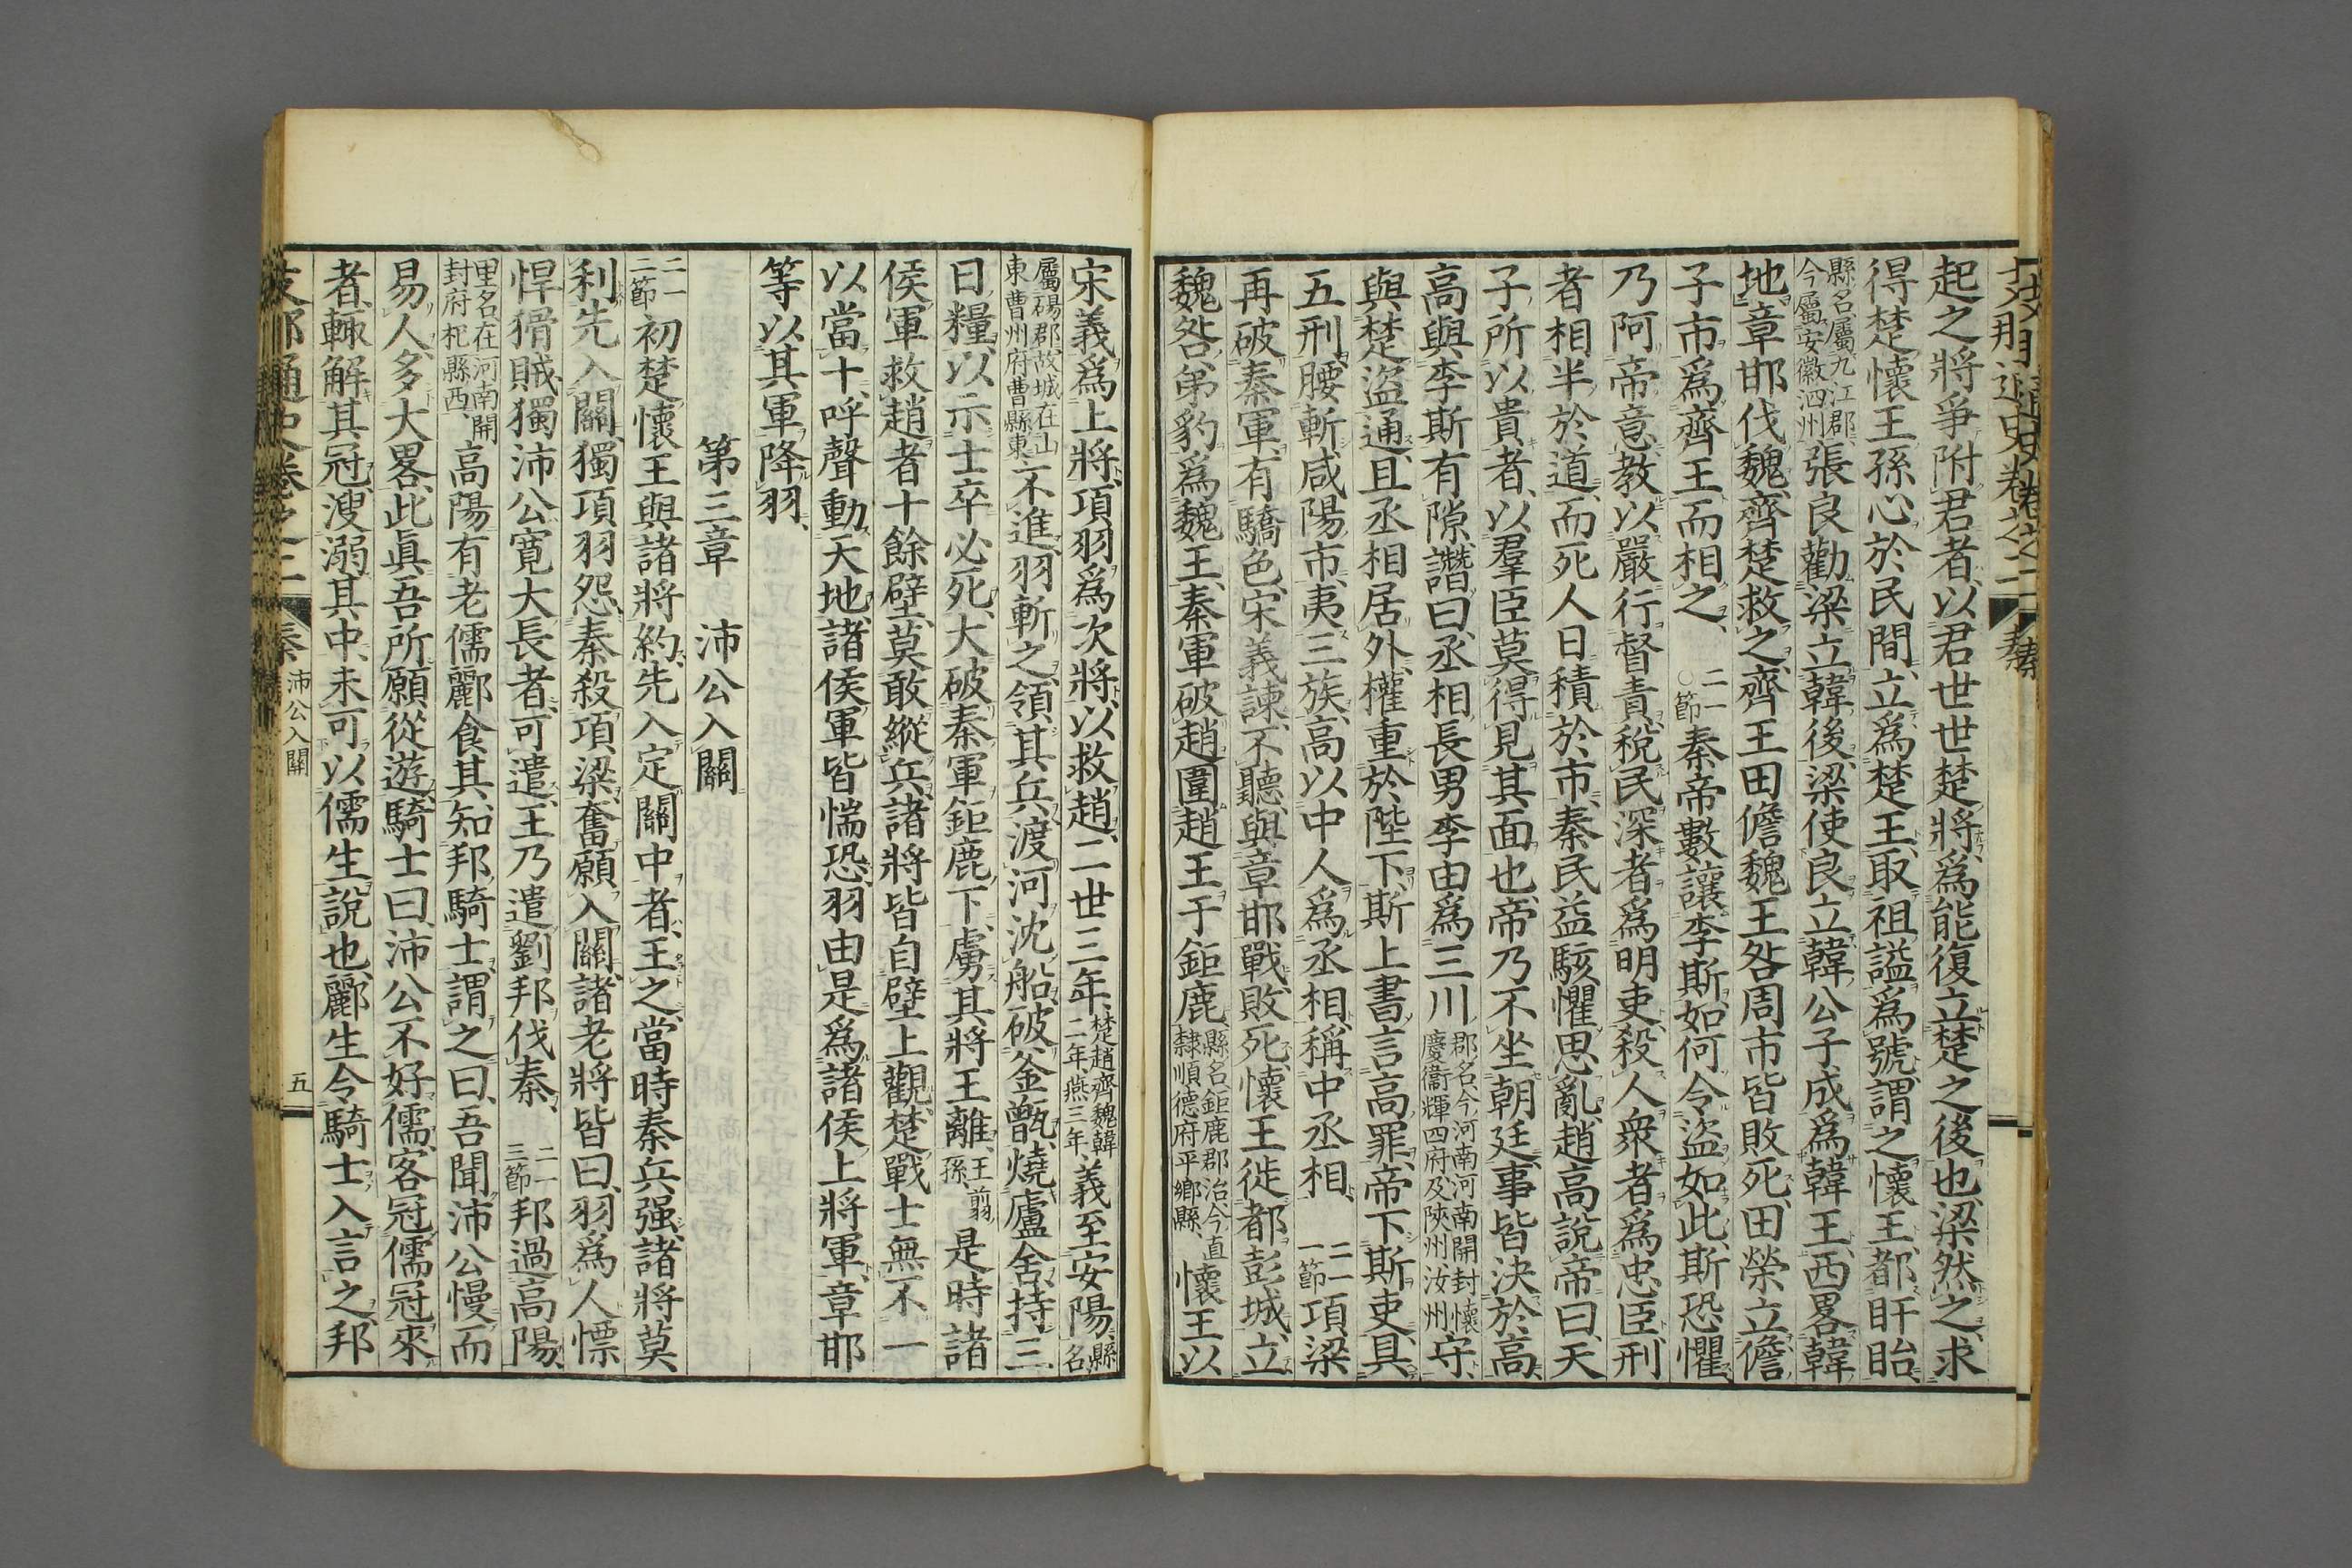 支那通史卷之二 秦
起之將爭附君者、以君世世楚將、爲能復立楚之後也、梁然之、求
得楚懷王孫心於民間、立爲楚王、取祖謚爲號、謂之懷王、都盱眙、
縣名、屬九江郡、今屬安徽泗州、張良勸梁立韓後、梁使良立韓公子成爲韓王、西畧韓
地、章邯伐魏、齊楚救之、齊王田儋魏王咎周市皆敗死、田榮立儋
子市爲齊王而相之、 二一〇節 秦帝數讓李斯、如何令盜如此、斯恐懼
乃阿帝意、敎以嚴行督責、稅民深者爲明吏、殺人衆者爲忠臣、刑
者相半於道、而死人日積於市、秦民益駭懼思亂、趙高說帝曰、天
子所以貴者、以羣臣莫得見其面也、帝乃不坐朝廷、事皆決於高、
高與李斯有隙、譖曰、丞相長男李由爲三川郡名、今河南河南開封懷慶衞輝四府及陝州、汝州、守、
與楚盜通、且丞相居外、權重於陛下、斯上書言高罪、帝下斯吏、具
五刑、腰斬咸陽市、夷三族、高以中人爲丞相、稱中丞相、 二一一節 項梁
再破秦軍、有驕色、宋義諫、不聽、與章邯戰、敗死、懷王徙都彭城、立
魏咎弟豹爲魏王、秦軍破趙、圍趙王于鉅鹿縣名、鉅鹿郡治、今直隸順德府平鄕縣、懷王以
宋義爲上將、項羽爲次將、以救趙、二世三年、楚趙齊魏韓二年、燕三年、義至安陽、縣名、
屬碭郡、故城在山東曹州府曹縣東、不進、羽斬之、領其兵、渡河沈船、破釜甑、燒廬舍、持三
日糧、以示士卒必死、大破秦軍鉅鹿下、虜其將王離、王翦孫、是時諸
侯軍救趙者十餘壁、莫敢縱兵、諸將皆自壁上觀、楚戰士無不一
以當十、呼聲動天地、諸侯軍皆惴恐、羽由是爲諸侯上將軍、章邯
等以其軍降羽、
第三章 沛公入關
二一二節 初楚懷王與諸將約、先入定關中者、王之、當時秦兵强、諸將莫
利先入關、獨項羽怨秦殺項梁、奮願入關、諸老將皆曰、羽爲人慓
悍猾賊、獨沛公寬大長者、可遣、王乃遣劉邦伐秦、 二一三節 邦過高陽、
里名、在河南開封府杞縣西、高陽有老儒酈食其、知邦騎士、謂之曰、吾聞沛公慢而
易人、多大畧、此眞吾所願從遊、騎士曰、沛公不好儒、客冠儒冠來
者、輙解其冠、溲溺其中、未可以儒生說也、酈生令騎士入言之、邦
支那通史卷之二 秦 沛公入關 五